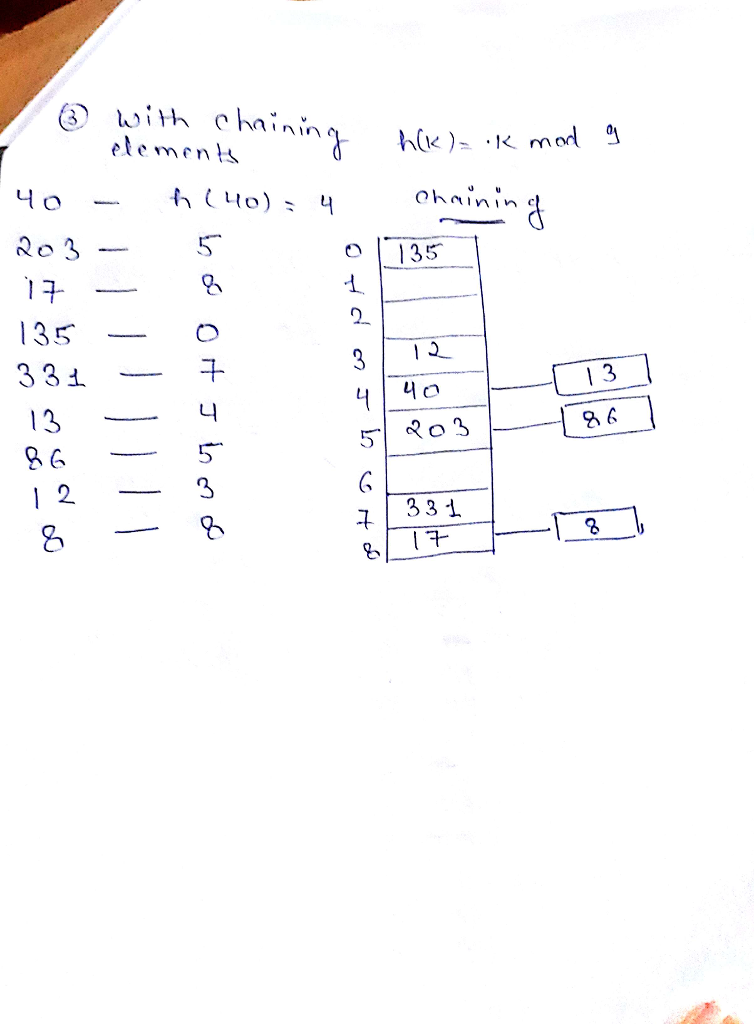 ③ With chaining h(K) = .K mod 9
elements
40 — h(40) = 4 chaining
203 — 5
17 — 8
135 — 0
331 — 7
13 — 4
86 — 5
12 — 3
8 — 8
0 135
1
2
3 12
4 40 — 13
5 203 — 86
6
7 331
8 17 — 8